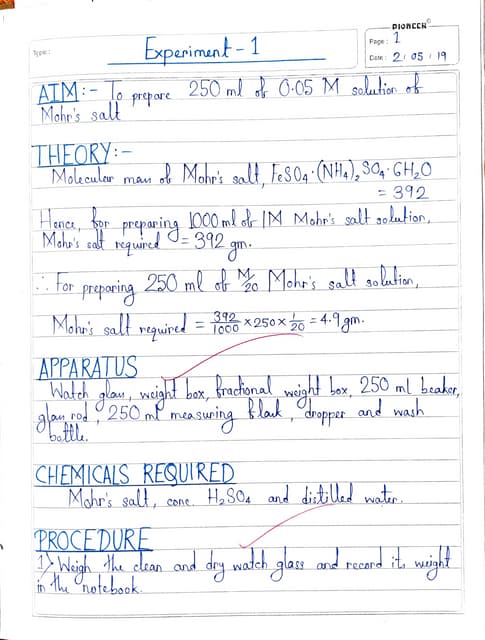 PIONEER
Topic:
Experiment - 1
Page: 1
Date: 2/05/19
AIM:- To prepare 250 ml of 0.05 M solution of
Mohr's salt
THEORY:-
Molecular mass of Mohr's salt, FeSO₄·(NH₄)₂SO₄·6H₂O
= 392
Hence, for preparing 1000 ml of 1M Mohr's salt solution,
Mohr's salt required = 392 gm.
∴ For preparing 250 ml of M/20 Mohr's salt solution,
Mohr's salt required = 392/1000 × 250 × 1/20 = 4.9 gm.
APPARATUS
Watch glass, weight box, fractional weight box, 250 ml beaker,
glass rod, 250 ml measuring flask, dropper and wash
bottle.
CHEMICALS REQUIRED
Mohr's salt, conc. H₂SO₄ and distilled water.
PROCEDURE
1> Weigh the clean and dry watch glass and record its weight
in the notebook.